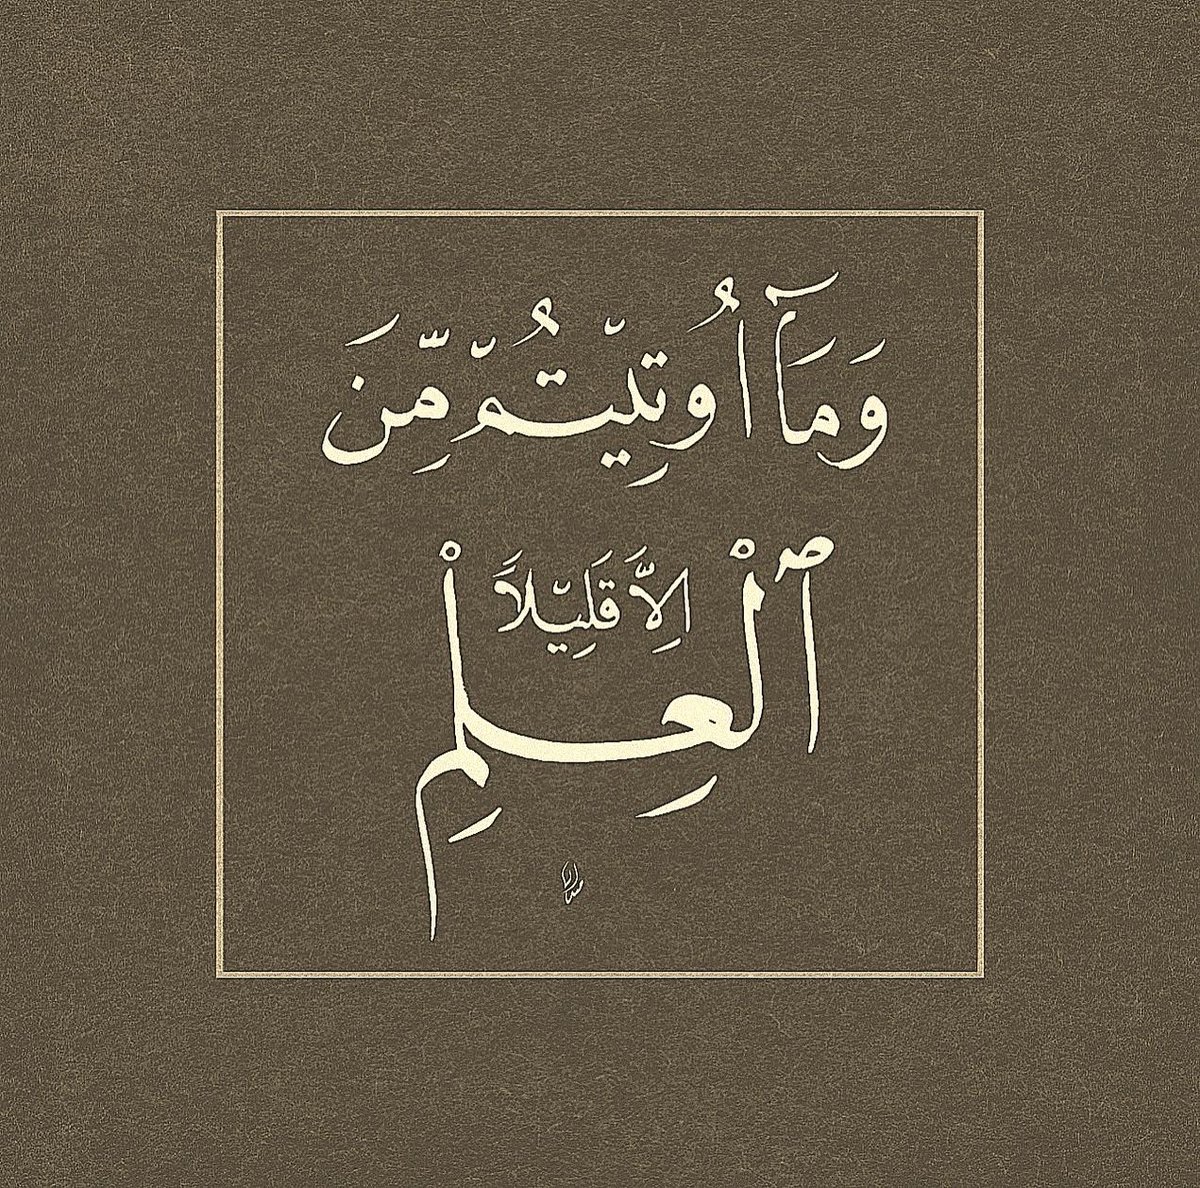 وَمَآ أُوتِيْتُمْ مِّنَ
ٱلْعِلْمِ
اِلاَّ قَلِيْلاً